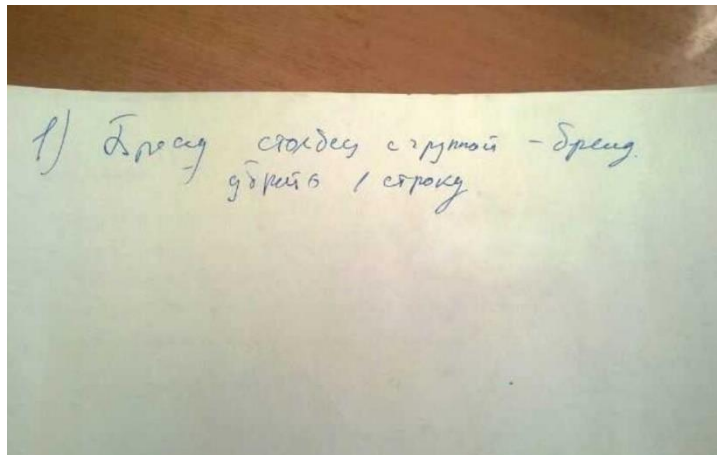 1) Бренд столбец с группой - бренд.
убрать 1 строку